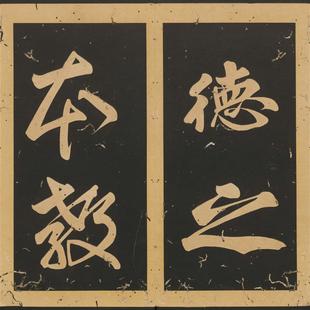 德之
本教